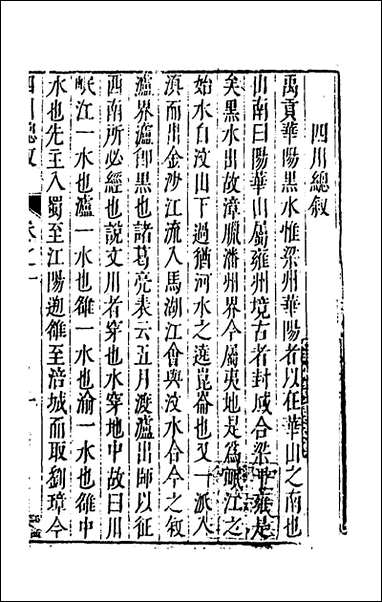 四川總敘
禹貢華陽黑水惟梁州華陽者以在華山之南也
山南曰陽華山屬雍州境古者封域合梁於雍是
矣黑水出故漳臘潘州界今屬夷地是為岷江之
始水自汶山下過猶河水之遶崑崙也又一派入
滇而出金沙江流入馬湖江會與汶水合今之敘
瀘界瀘即黑也諸葛亮表云五月渡瀘出師以征
西南所必經也說文川者穿也水穿地中故曰川
岷江一水也瀘一水也雒一水也渝一水也雒中
水也先主入蜀至江陽遡雒至涪城而取劉璋今
四川總敘 卷之一